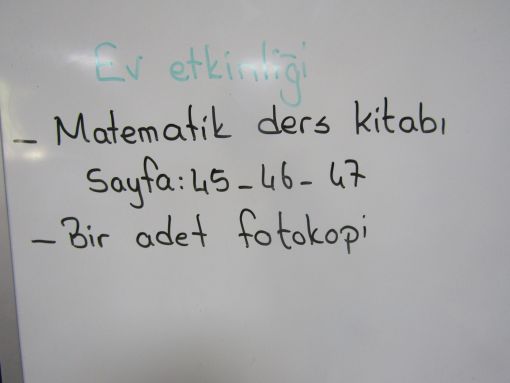 Ev etkinliği
- Matematik ders kitabı
Sayfa: 45-46-47
- Bir adet fotokopi